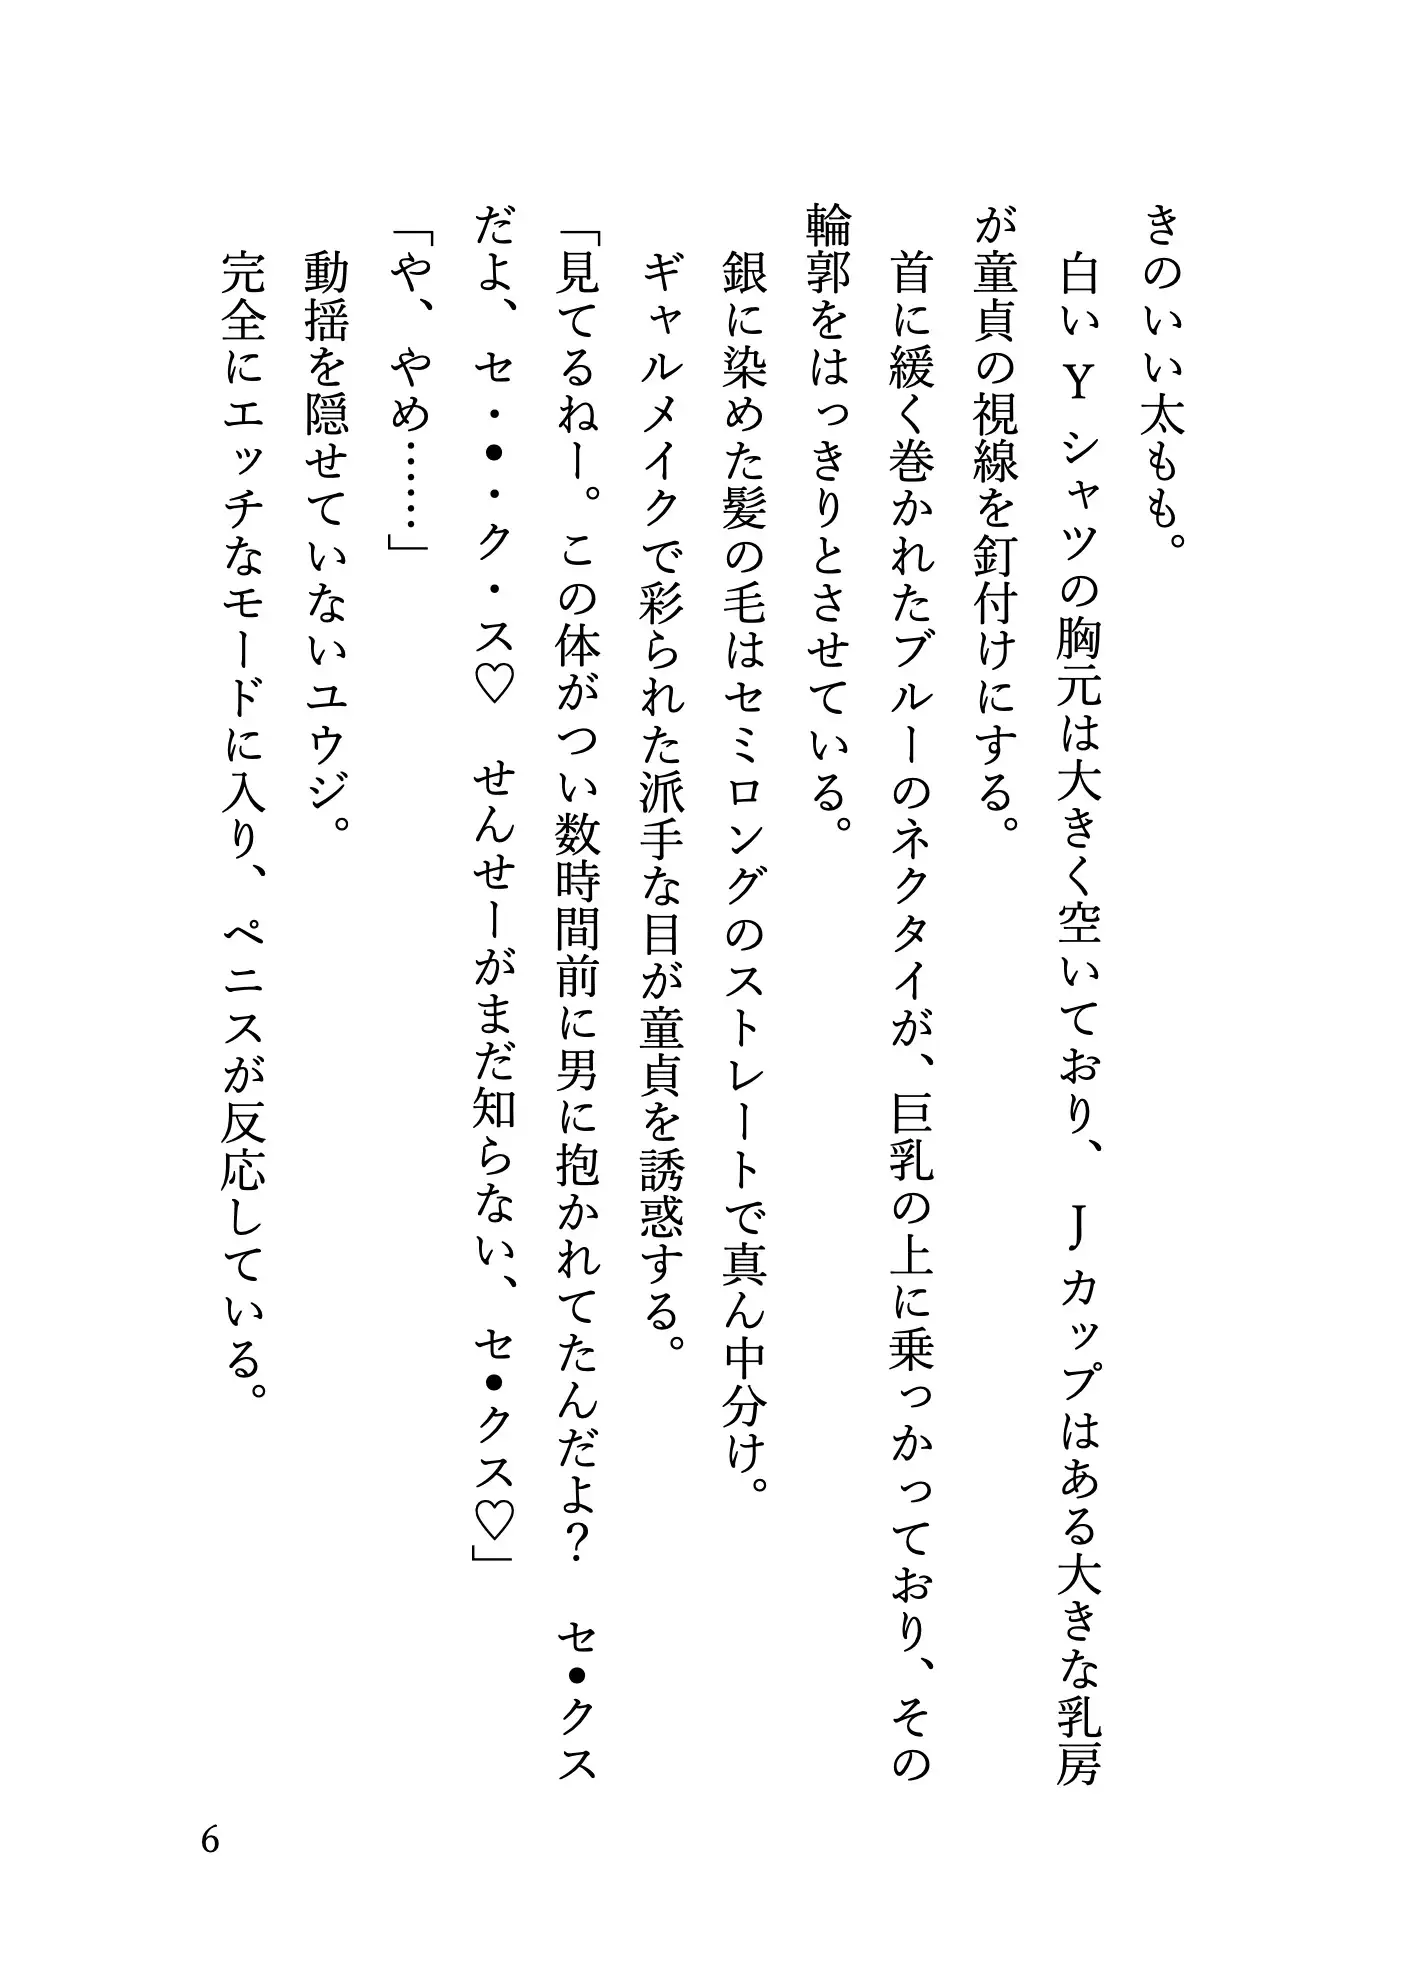 きのいい太もも。
白いYシャツの胸元は大きく空いており、Jカップはある大きな乳房
が童貞の視線を釘付けにする。
首に緩く巻かれたブルーのネクタイが、巨乳の上に乗っかっており、その
輪郭をはっきりとさせている。
銀に染めた髪の毛はセミロングのストレートで真ん中分け。
ギャルメイクで彩られた派手な目が童貞を誘惑する。
「見てるねー。この体がつい数時間前に男に抱かれてたんだよ？　セ●クス
だよ、セ・●・ク・ス♡　せんせーがまだ知らない、セ●クス♡」
「や、やめ……」
動揺を隠せていないユウジ。
完全にエッチなモードに入り、ペニスが反応している。
6